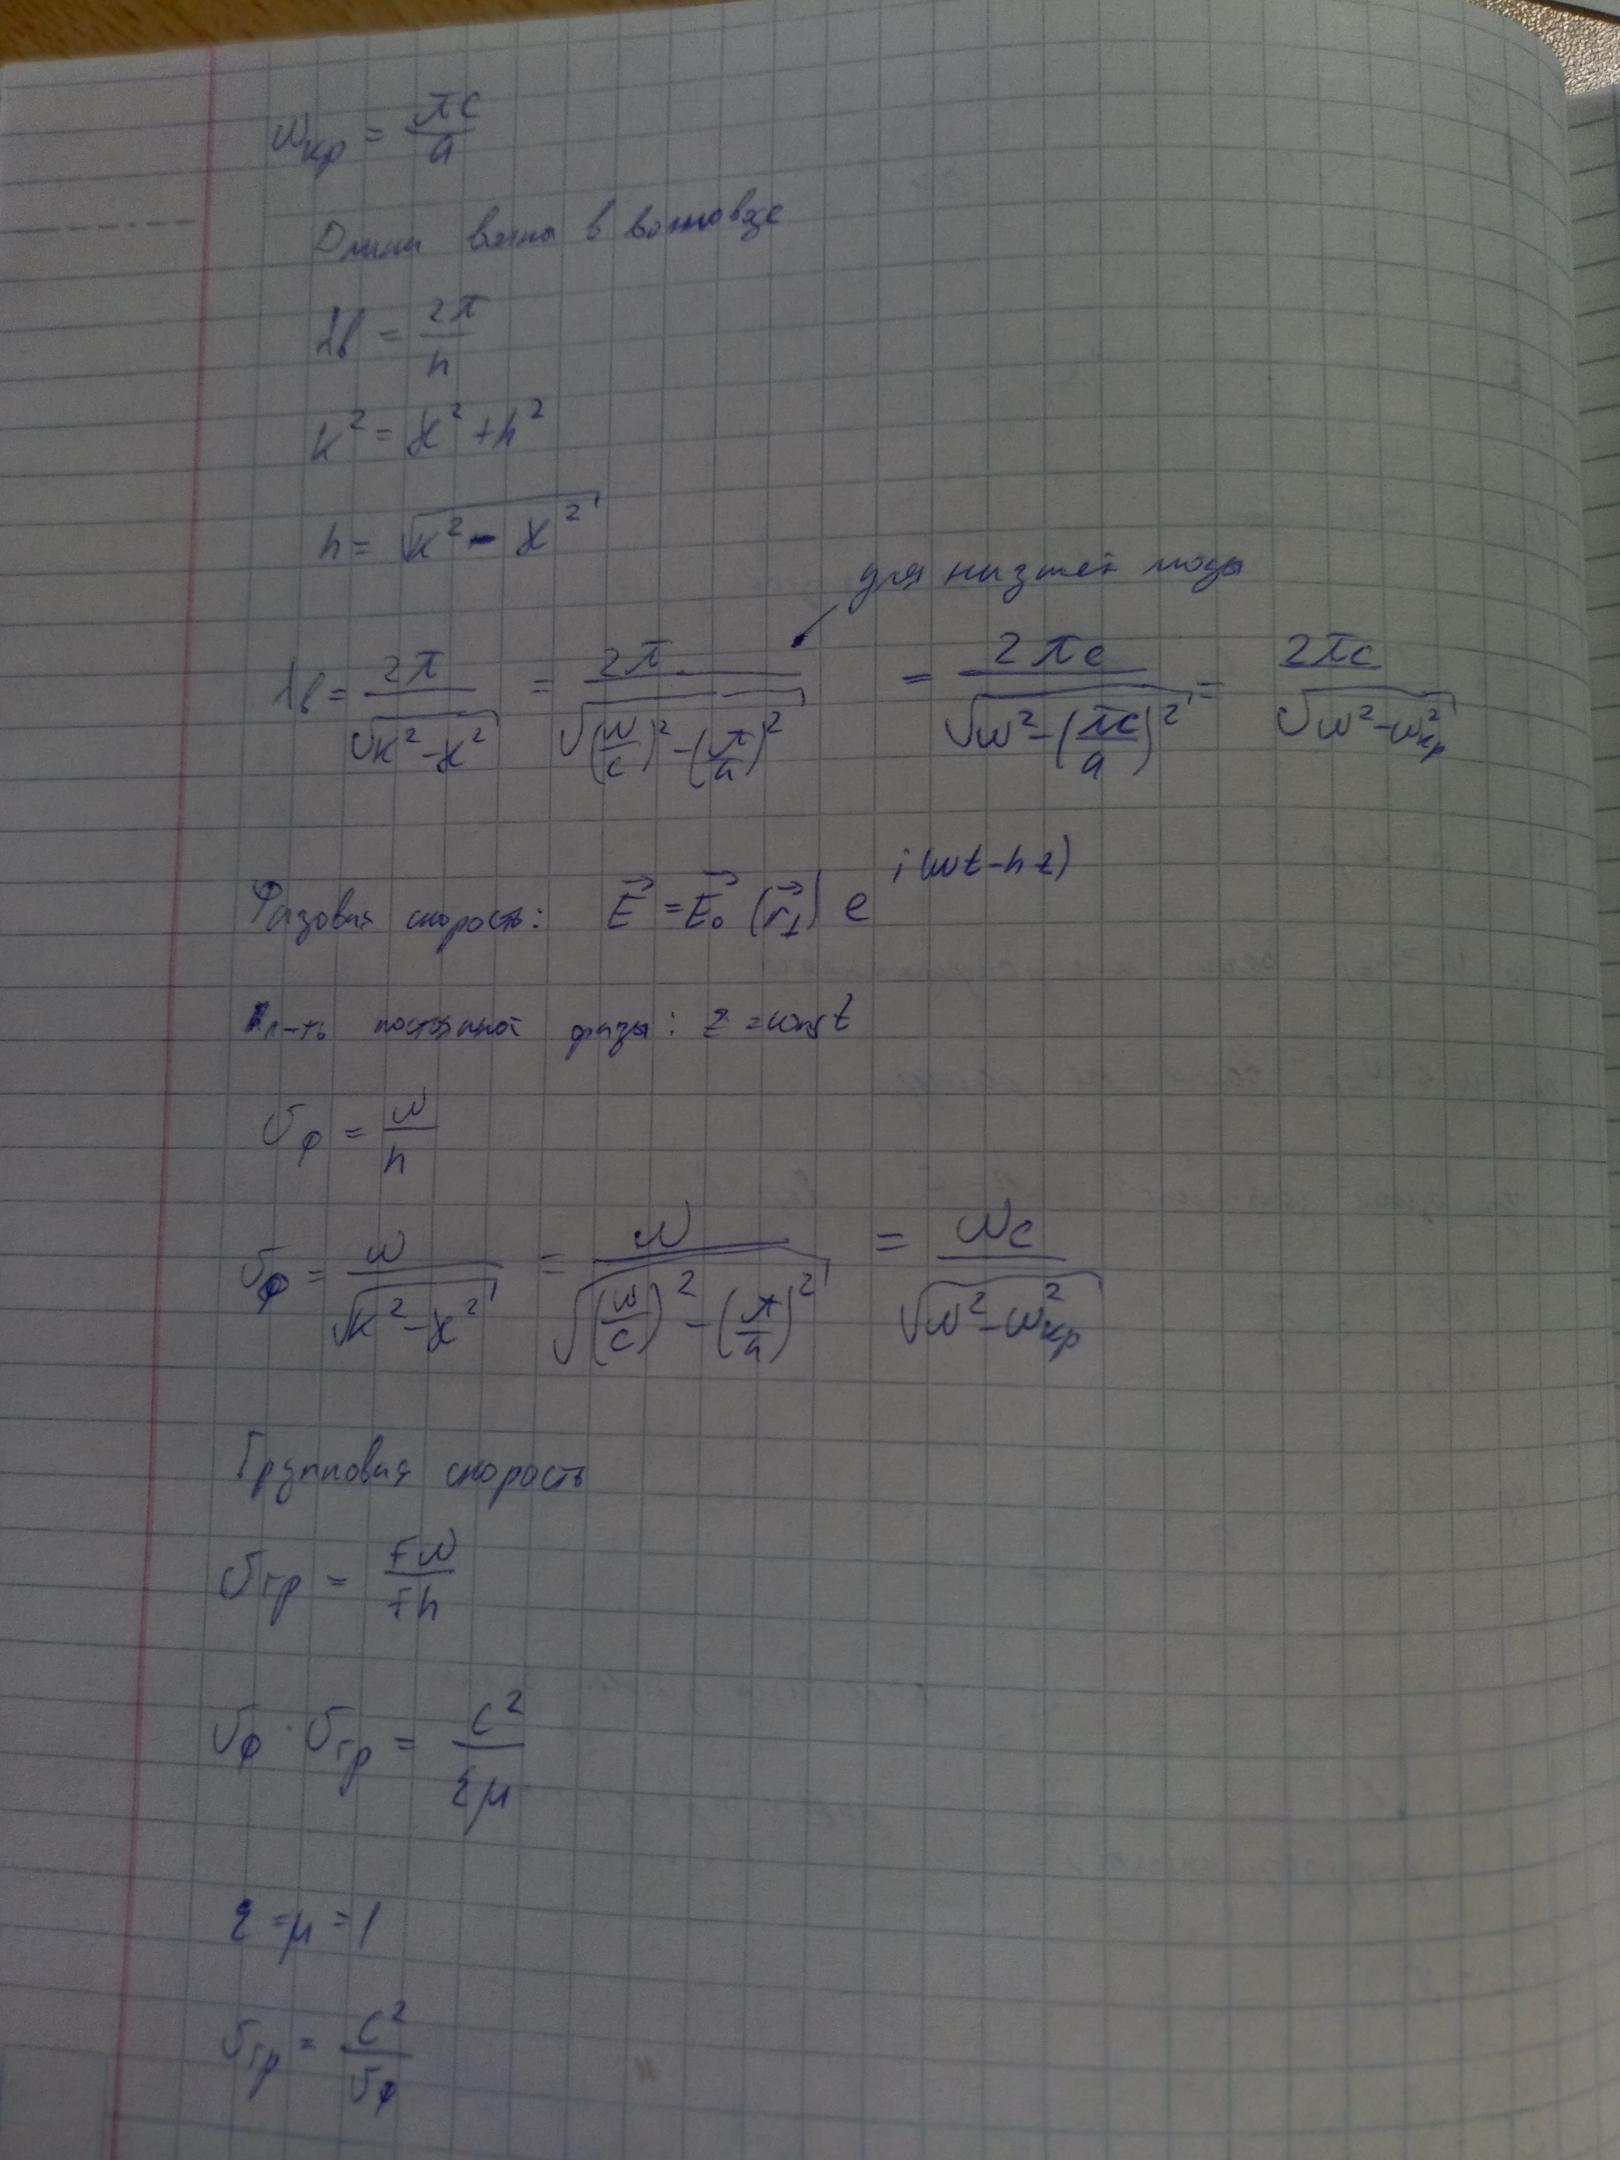 ω_кр = πc/a
Длина волны в волноводе
λ_в = 2π/h
k² = ϰ² + h²
h = √(k² - ϰ²)
для низшей моды
λ_в = 2π/√(k² - ϰ²) = 2π/√((ω/c)² - (π/a)²) = 2πc/√(ω² - (πc/a)²) = 2πc/√(ω² - ω²_кр)
Фазовая скорость: E⃗ = E⃗₀ (r⃗_⊥) e^{i(ωt - hz)}
пл-ть постоянной фазы: z = const
v_ф = ω/h
v_ф = ω/√(k² - ϰ²) = ω/√((ω/c)² - (π/a)²) = ωc/√(ω² - ω²_кр)
Групповая скорость
v_гр = ∂ω/∂h
v_ф · v_гр = c²/εμ
ε = μ = 1
v_гр = c²/v_ф